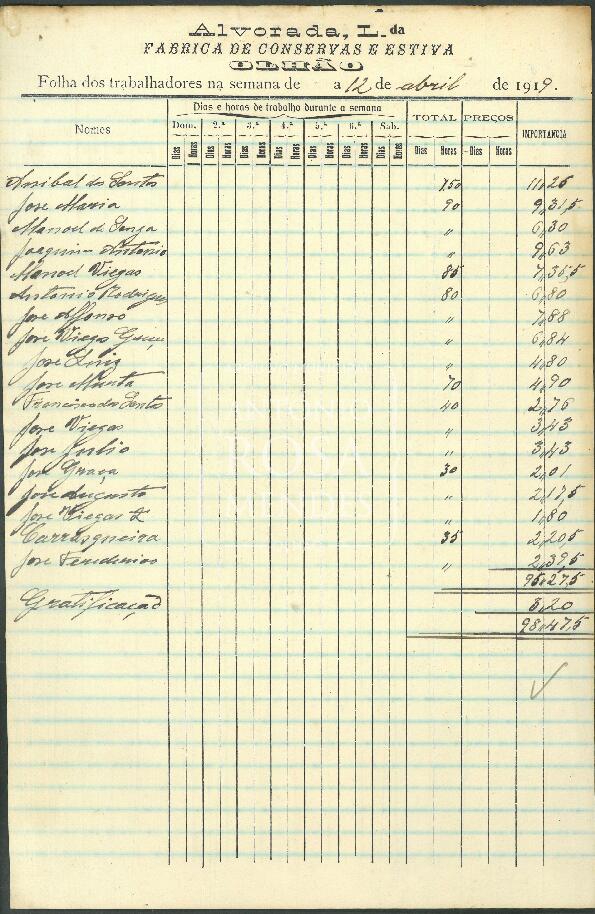 Alvorada, L.da
FABRICA DE CONSERVAS E ESTIVA
OLHÃO
Folha dos trabalhadores na semana de a 12 de abril de 1919.
Nomes Dias e horas de trabalho durante a semana TOTAL PREÇOS IMPORTANCIA
Dom. 2.ª 3.ª 4.ª 5.ª 6.ª Sab.
Dias Horas Dias Horas Dias Horas Dias Horas Dias Horas Dias Horas Dias Horas Dias Horas Dias Horas
Anibal dos Santos 150 11,25
José Maria 90 9,31,5
Manoel de Souza " 6,30
Joaquim Antonio " 9,63
Manoel Viegas 85 7,35,5
Antonio Rodrigues 80 6,80
José Affonso " 7,88
José Viegas " 6,84
José Luiz " 4,80
José 70 4,90
Francisco dos Santos 40 2,76
José Viegas " 3,43
José Julio " 3,43
José Graça 30 2,01
José Augusto " 2,17,5
José Viegas 2º " 1,80
Carrasqueira 35 2,20,5
José Fernandes " 2,39,5
95,27,5
Gratificação 3,20
98,47,5
ANTONIO
ROSA
MENDES